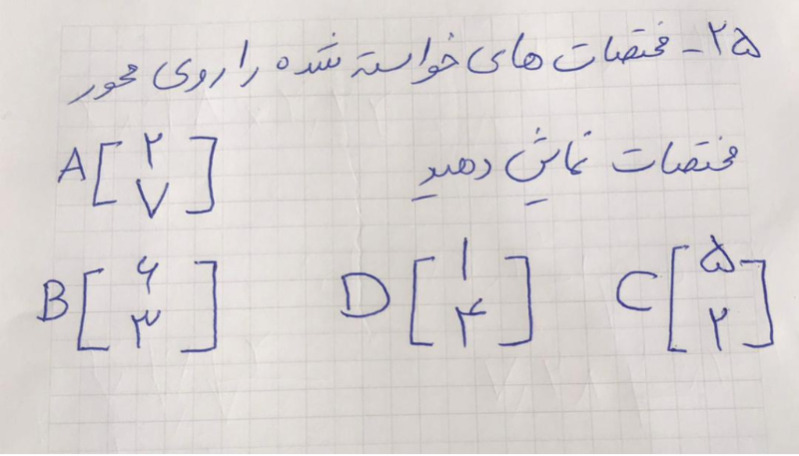 ۲۵- مختصات های خواسته شده را روی محور
مختصات نمایش دهید
A[۲ ۷]
B[۶ ۳] D[۱ ۴] C[۵ ۲]